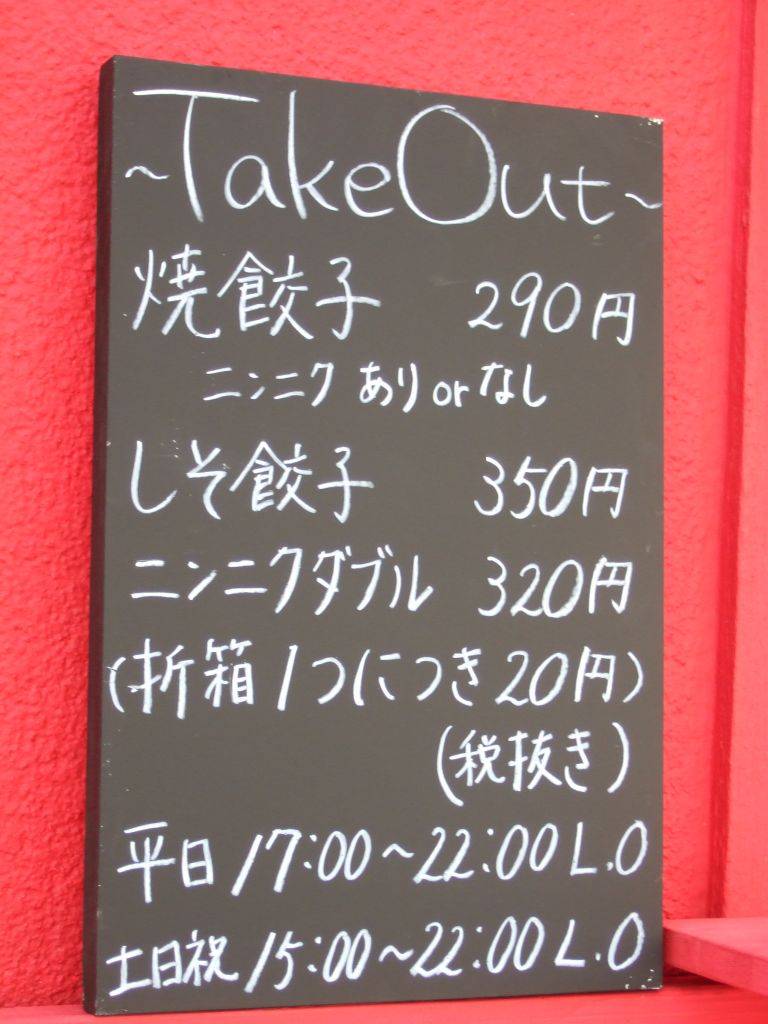 ~TakeOut~
焼餃子 290円
ニンニク ありorなし
しそ餃子 350円
ニンニクダブル 320円
(折箱1つにつき20円)
(税抜き)
平日17:00~22:00 L.O
土日祝15:00~22:00 L.O